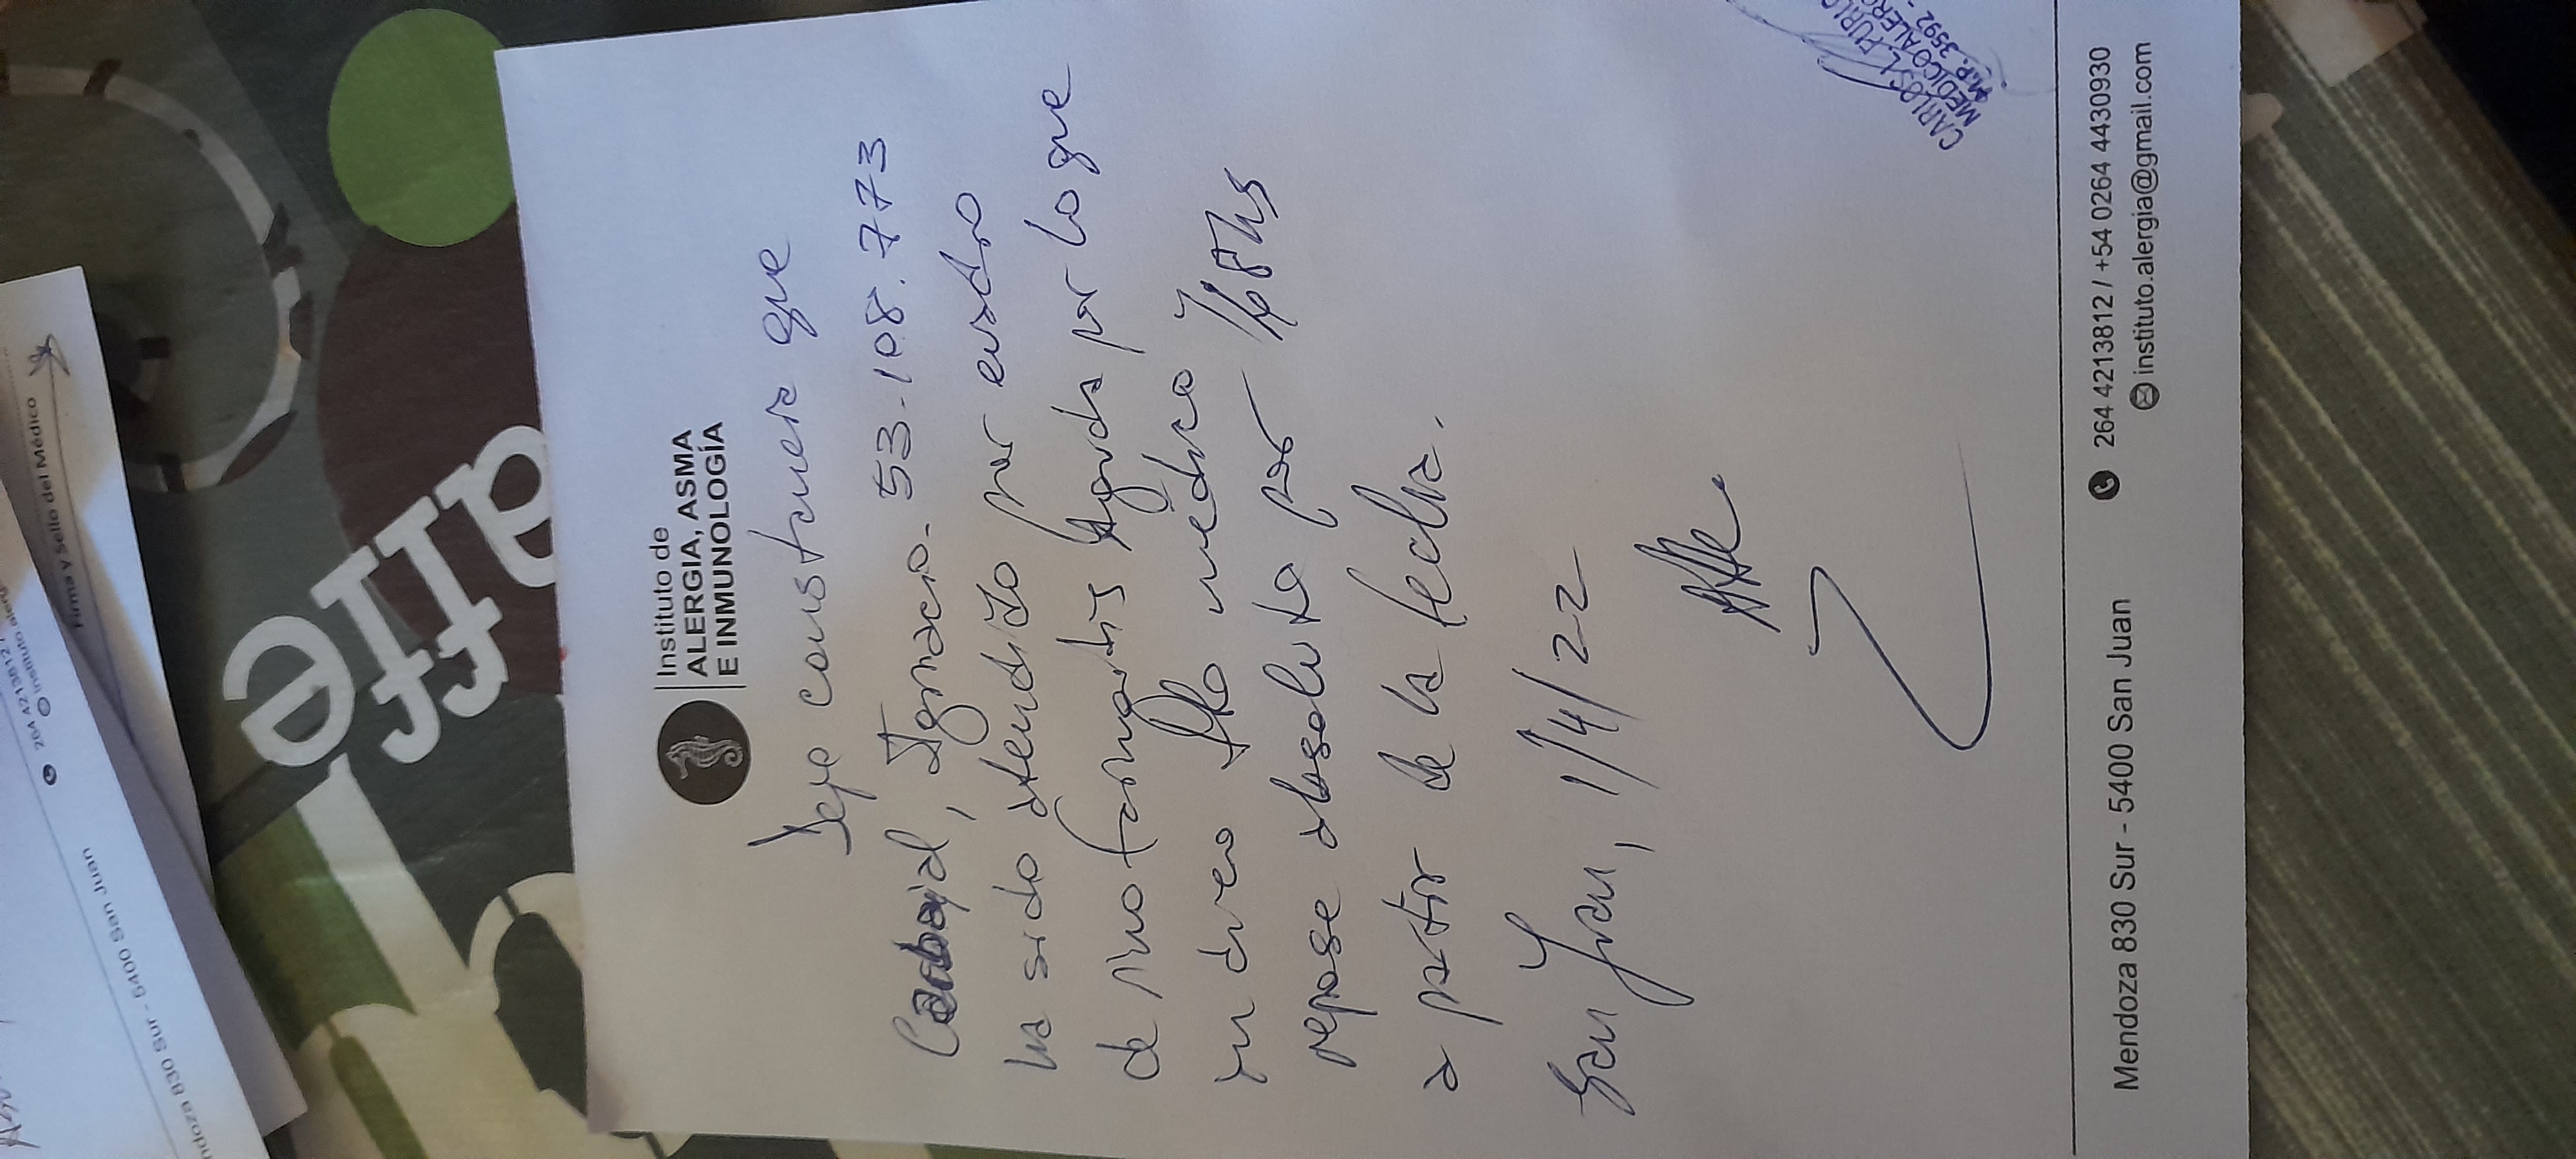 Instituto de
ALERGIA, ASMA
E INMUNOLOGÍA
Dejo constancia que
Carbajal, Ignacio. 53.108.773
ha sido atendido por cuadro
de rinofaringitis Aguda por lo que
indico Alto médico y
reposo absoluto por 48 hs
a partir de la fecha.
San Juan, 1/4/22
Atte
CARLOS L. FURLO
MEDICO ALERG
M.P. 3592 -
Mendoza 830 Sur - 5400 San Juan
264 4213812 / +54 0264 4430930
instituto.alergia@gmail.com
Firma y Sello del Médico
264 4213812 /
instituto.alerg
ndoza 830 Sur - 5400 San Juan
arre